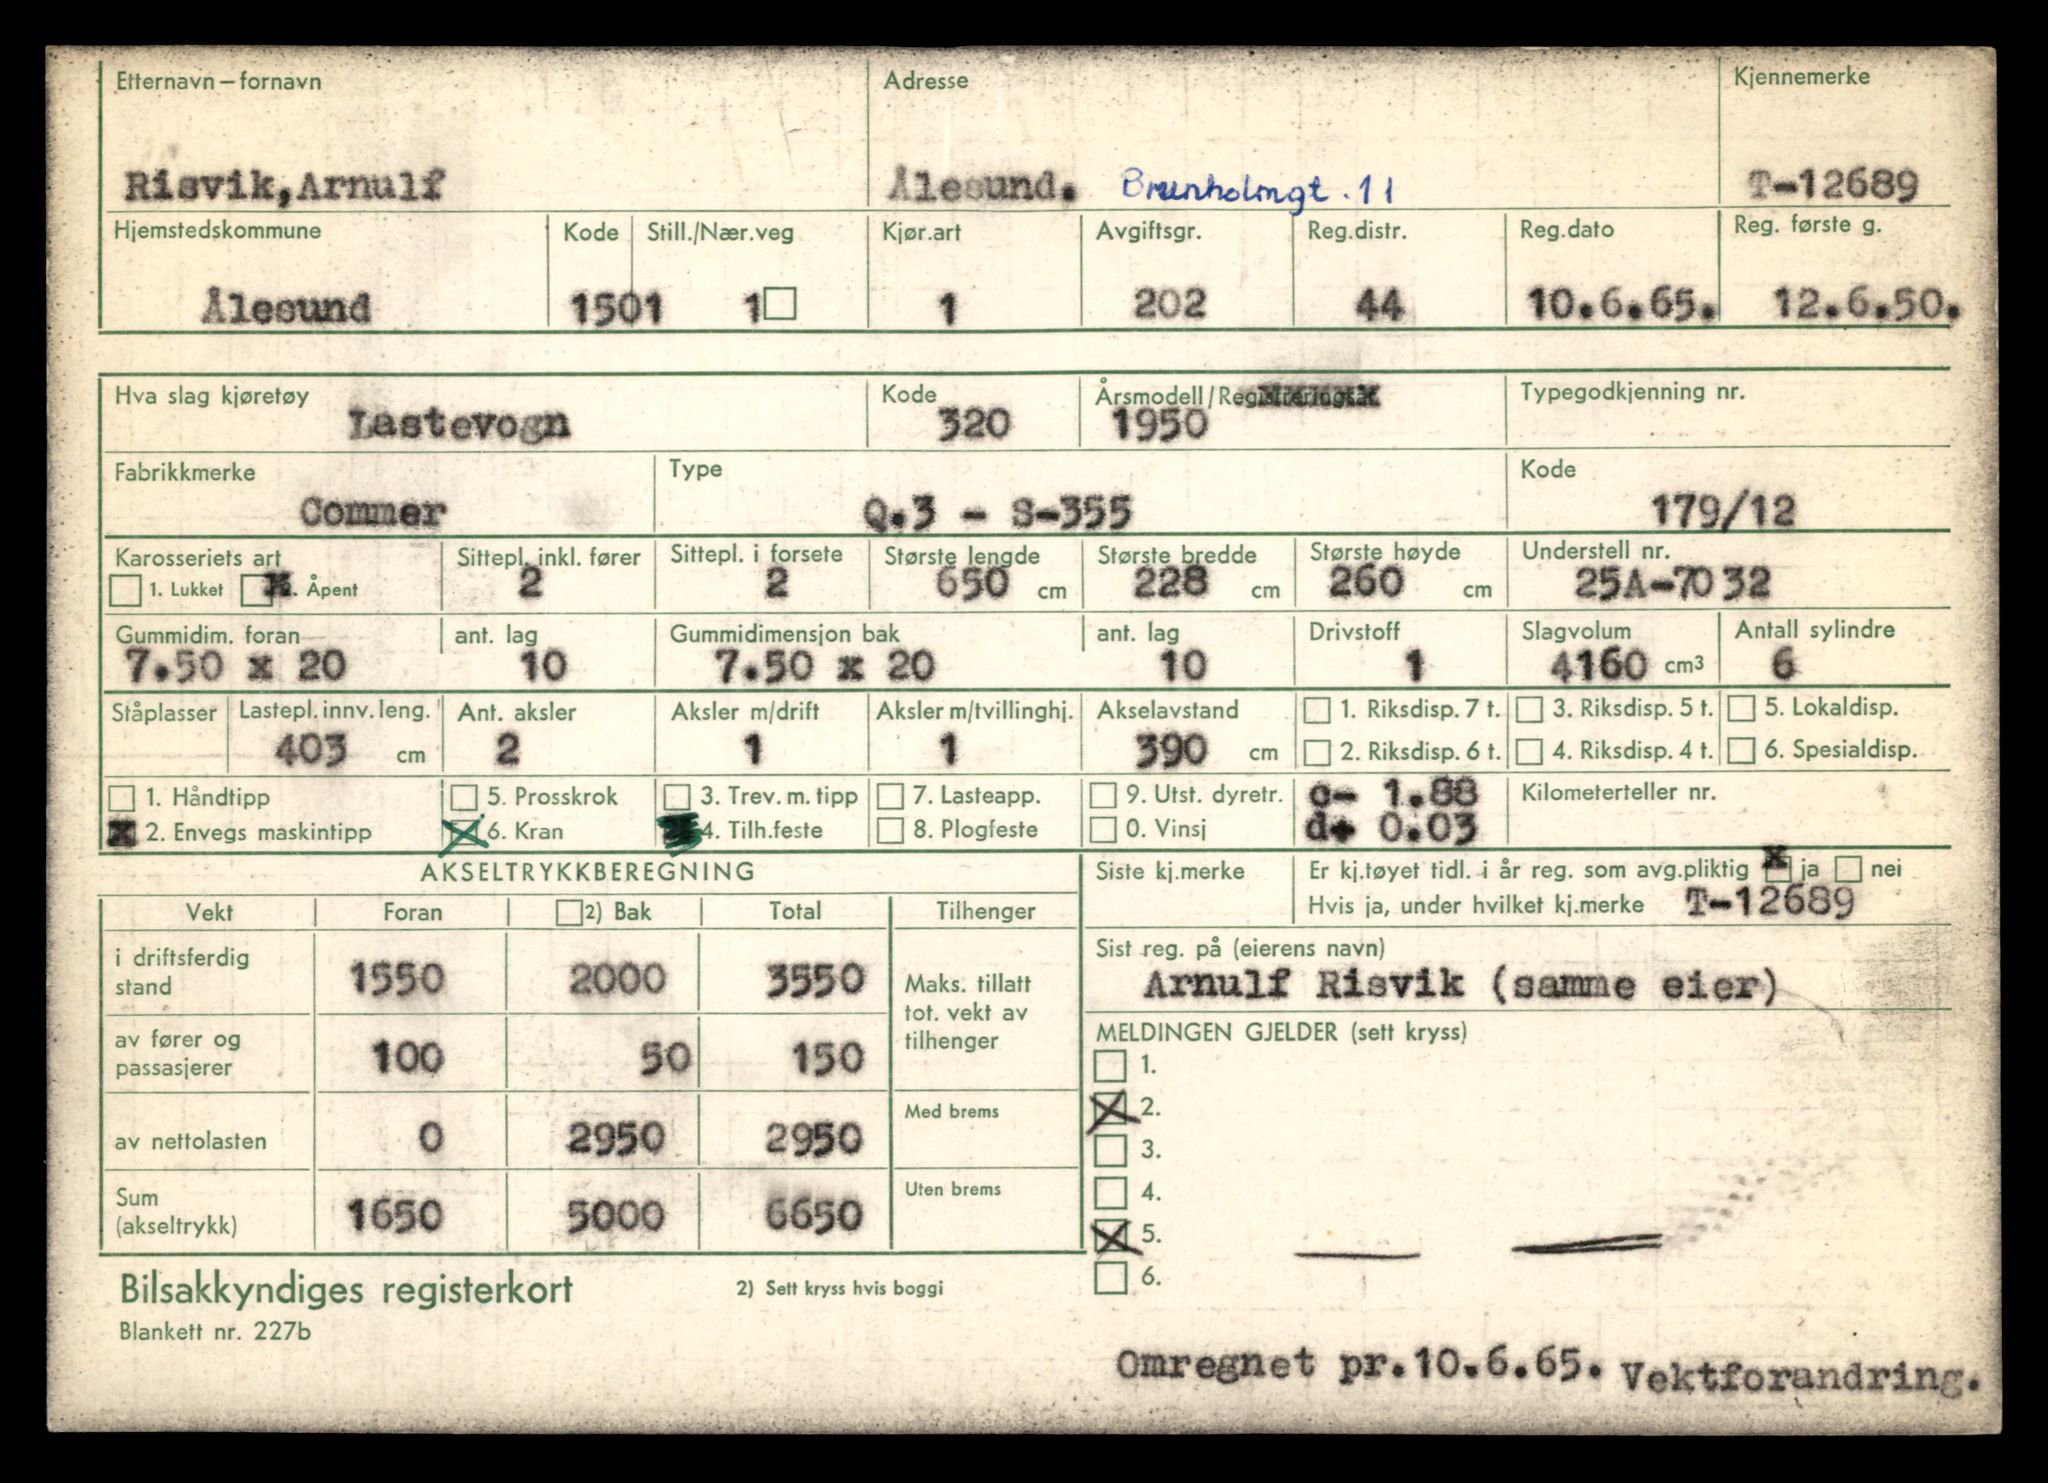 Etternavn – fornavn Adresse Kjennemerke
Risvik, Arnulf Ålesund. Brunholmgt. 11 T-12689
Hjemstedskommune Kode Still./Nær.veg Kjør.art Avgiftsgr. Reg.distr. Reg.dato Reg. første g.
Ålesund 1501 1 1 202 44 10.6.65. 12.6.50.
Hva slag kjøretøy Kode Årsmodell/Registreringsår Typegodkjenning nr.
Lastevogn 320 1950
Fabrikkmerke Type Kode
Commer Q.3 - S-355 179/12
Karosseriets art Sittepl. inkl. fører Sittepl. i forsete Største lengde Største bredde Største høyde Understell nr.
1. Lukket x 2. Åpent 2 2 650 cm 228 cm 260 cm 25A-7032
Gummidim. foran ant. lag Gummidimensjon bak ant. lag Drivstoff Slagvolum Antall sylindre
7.50 x 20 10 7.50 x 20 10 1 4160 cm3 6
Ståplasser Lastepl. innv. leng. Ant. aksler Aksler m/drift Aksler m/tvillinghj. Akselavstand 1. Riksdisp. 7 t. 3. Riksdisp. 5 t. 5. Lokaldisp.
403 cm 2 1 1 390 cm 2. Riksdisp. 6 t. 4. Riksdisp. 4 t. 6. Spesialdisp.
1. Håndtipp 5. Prosskrok 3. Trev. m. tipp 7. Lasteapp. 9. Utst. dyretr. c- 1.88 Kilometerteller nr.
x 2. Envegs maskintipp x 6. Kran 4. Tilh.feste 8. Plogfeste 0. Vinsj d+ 0.03
AKSELTRYKKBEREGNING Siste kj.merke Er kj.tøyet tidl. i år reg. som avg.pliktig x ja nei
Vekt Foran 2) Bak Total Tilhenger Hvis ja, under hvilket kj.merke T-12689
i driftsferdig stand 1550 2000 3550 Maks. tillatt tot. vekt av tilhenger
Sist reg. på (eierens navn)
Arnulf Risvik (samme eier)
av fører og passasjerer 100 50 150
MELDINGEN GJELDER (sett kryss)
1.
x 2.
av nettolasten 0 2950 2950 Med brems
3.
4.
Sum (akseltrykk) 1650 5000 6650 Uten brems
x 5.
6.
Bilsakkyndiges registerkort 2) Sett kryss hvis boggi
Blankett nr. 227b
Omregnet pr. 10.6.65. Vektforandring.